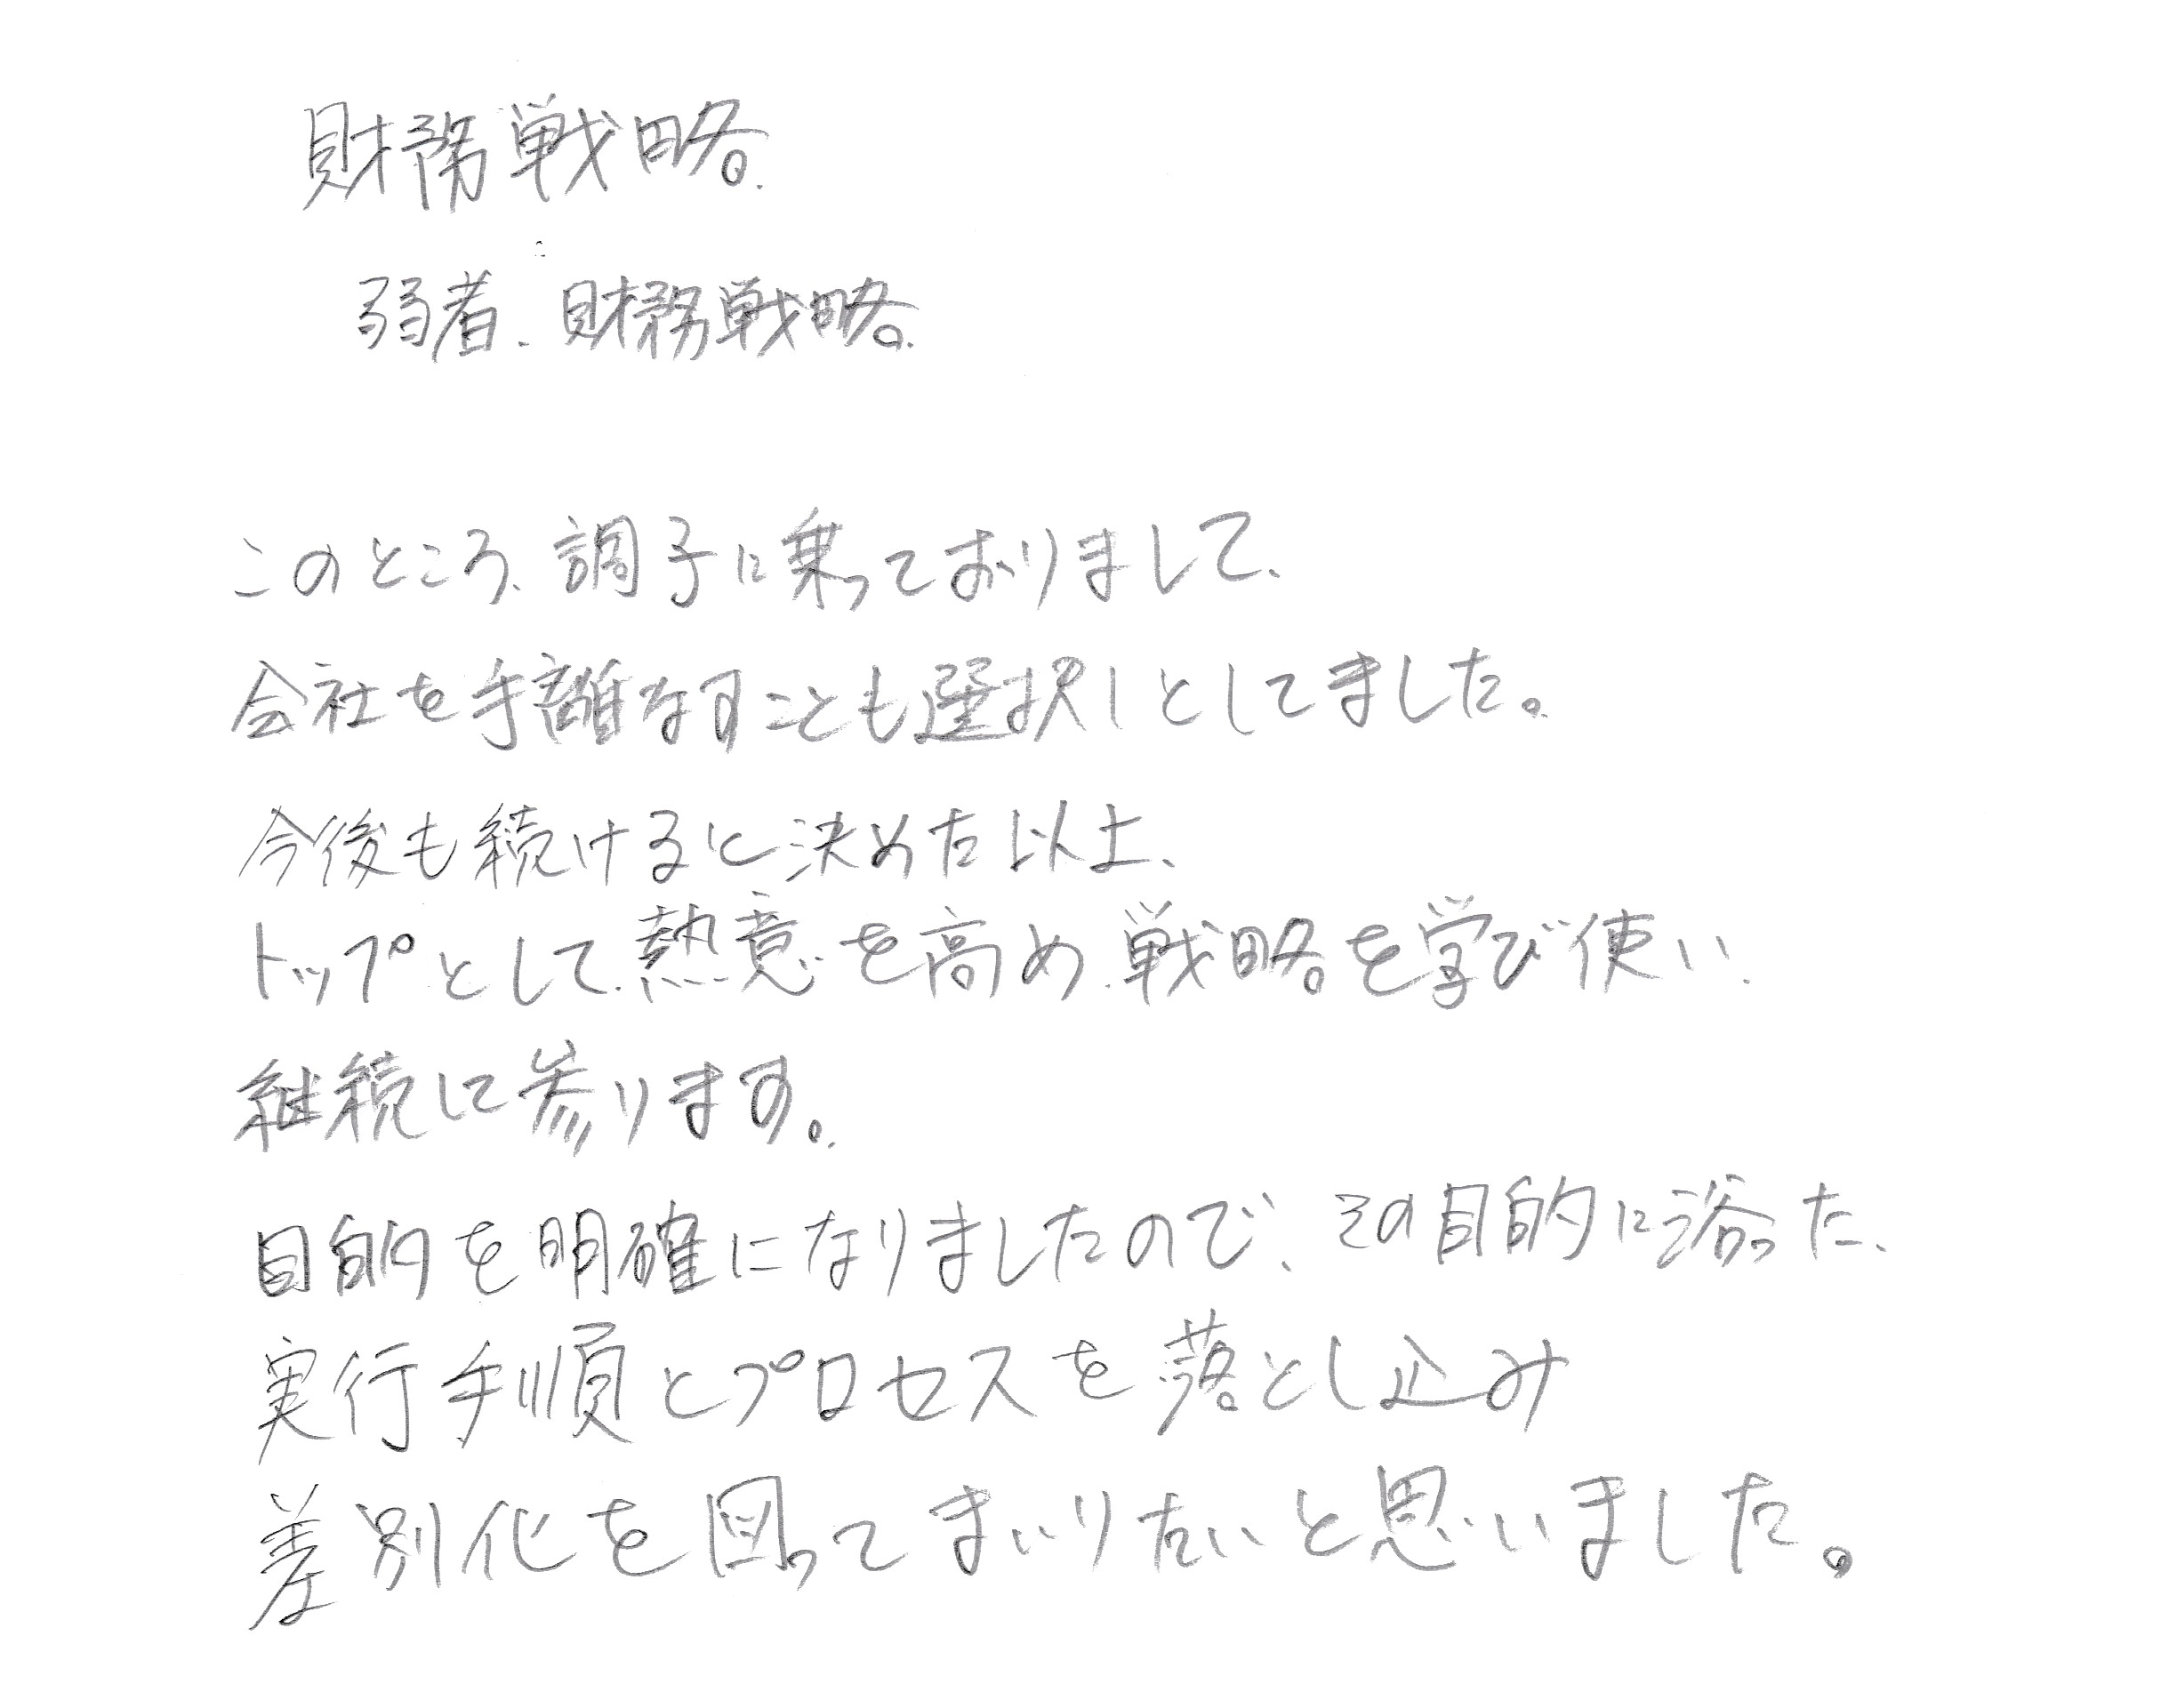 財務戦略。
弱者、財務戦略。
このところ、調子に乗っておりまして、
会社を手離なすことも選択しとしてました。
今後も続けると決めた以上、
トップとして、熱意を高め、戦略を学び使い、
継続に参ります。
目的を明確になりましたので、その目的に沿った、
実行手順とプロセスを落とし込み
差別化を図ってまいりたいと思いました。